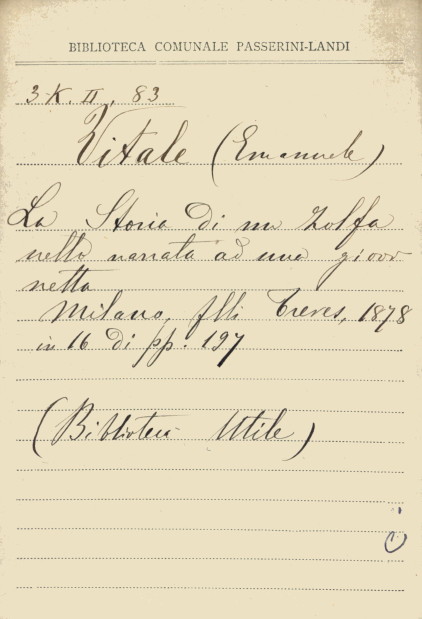 BIBLIOTECA COMUNALE PASSERINI-LANDI
3-K. II, 83
Vitale (Emanuele)
La Storia di un Zolfa
nello narrata ad una giovi
netta
Milano, flli Treves, 1878
in 16 di pp. 197
(Biblioteca Utile)